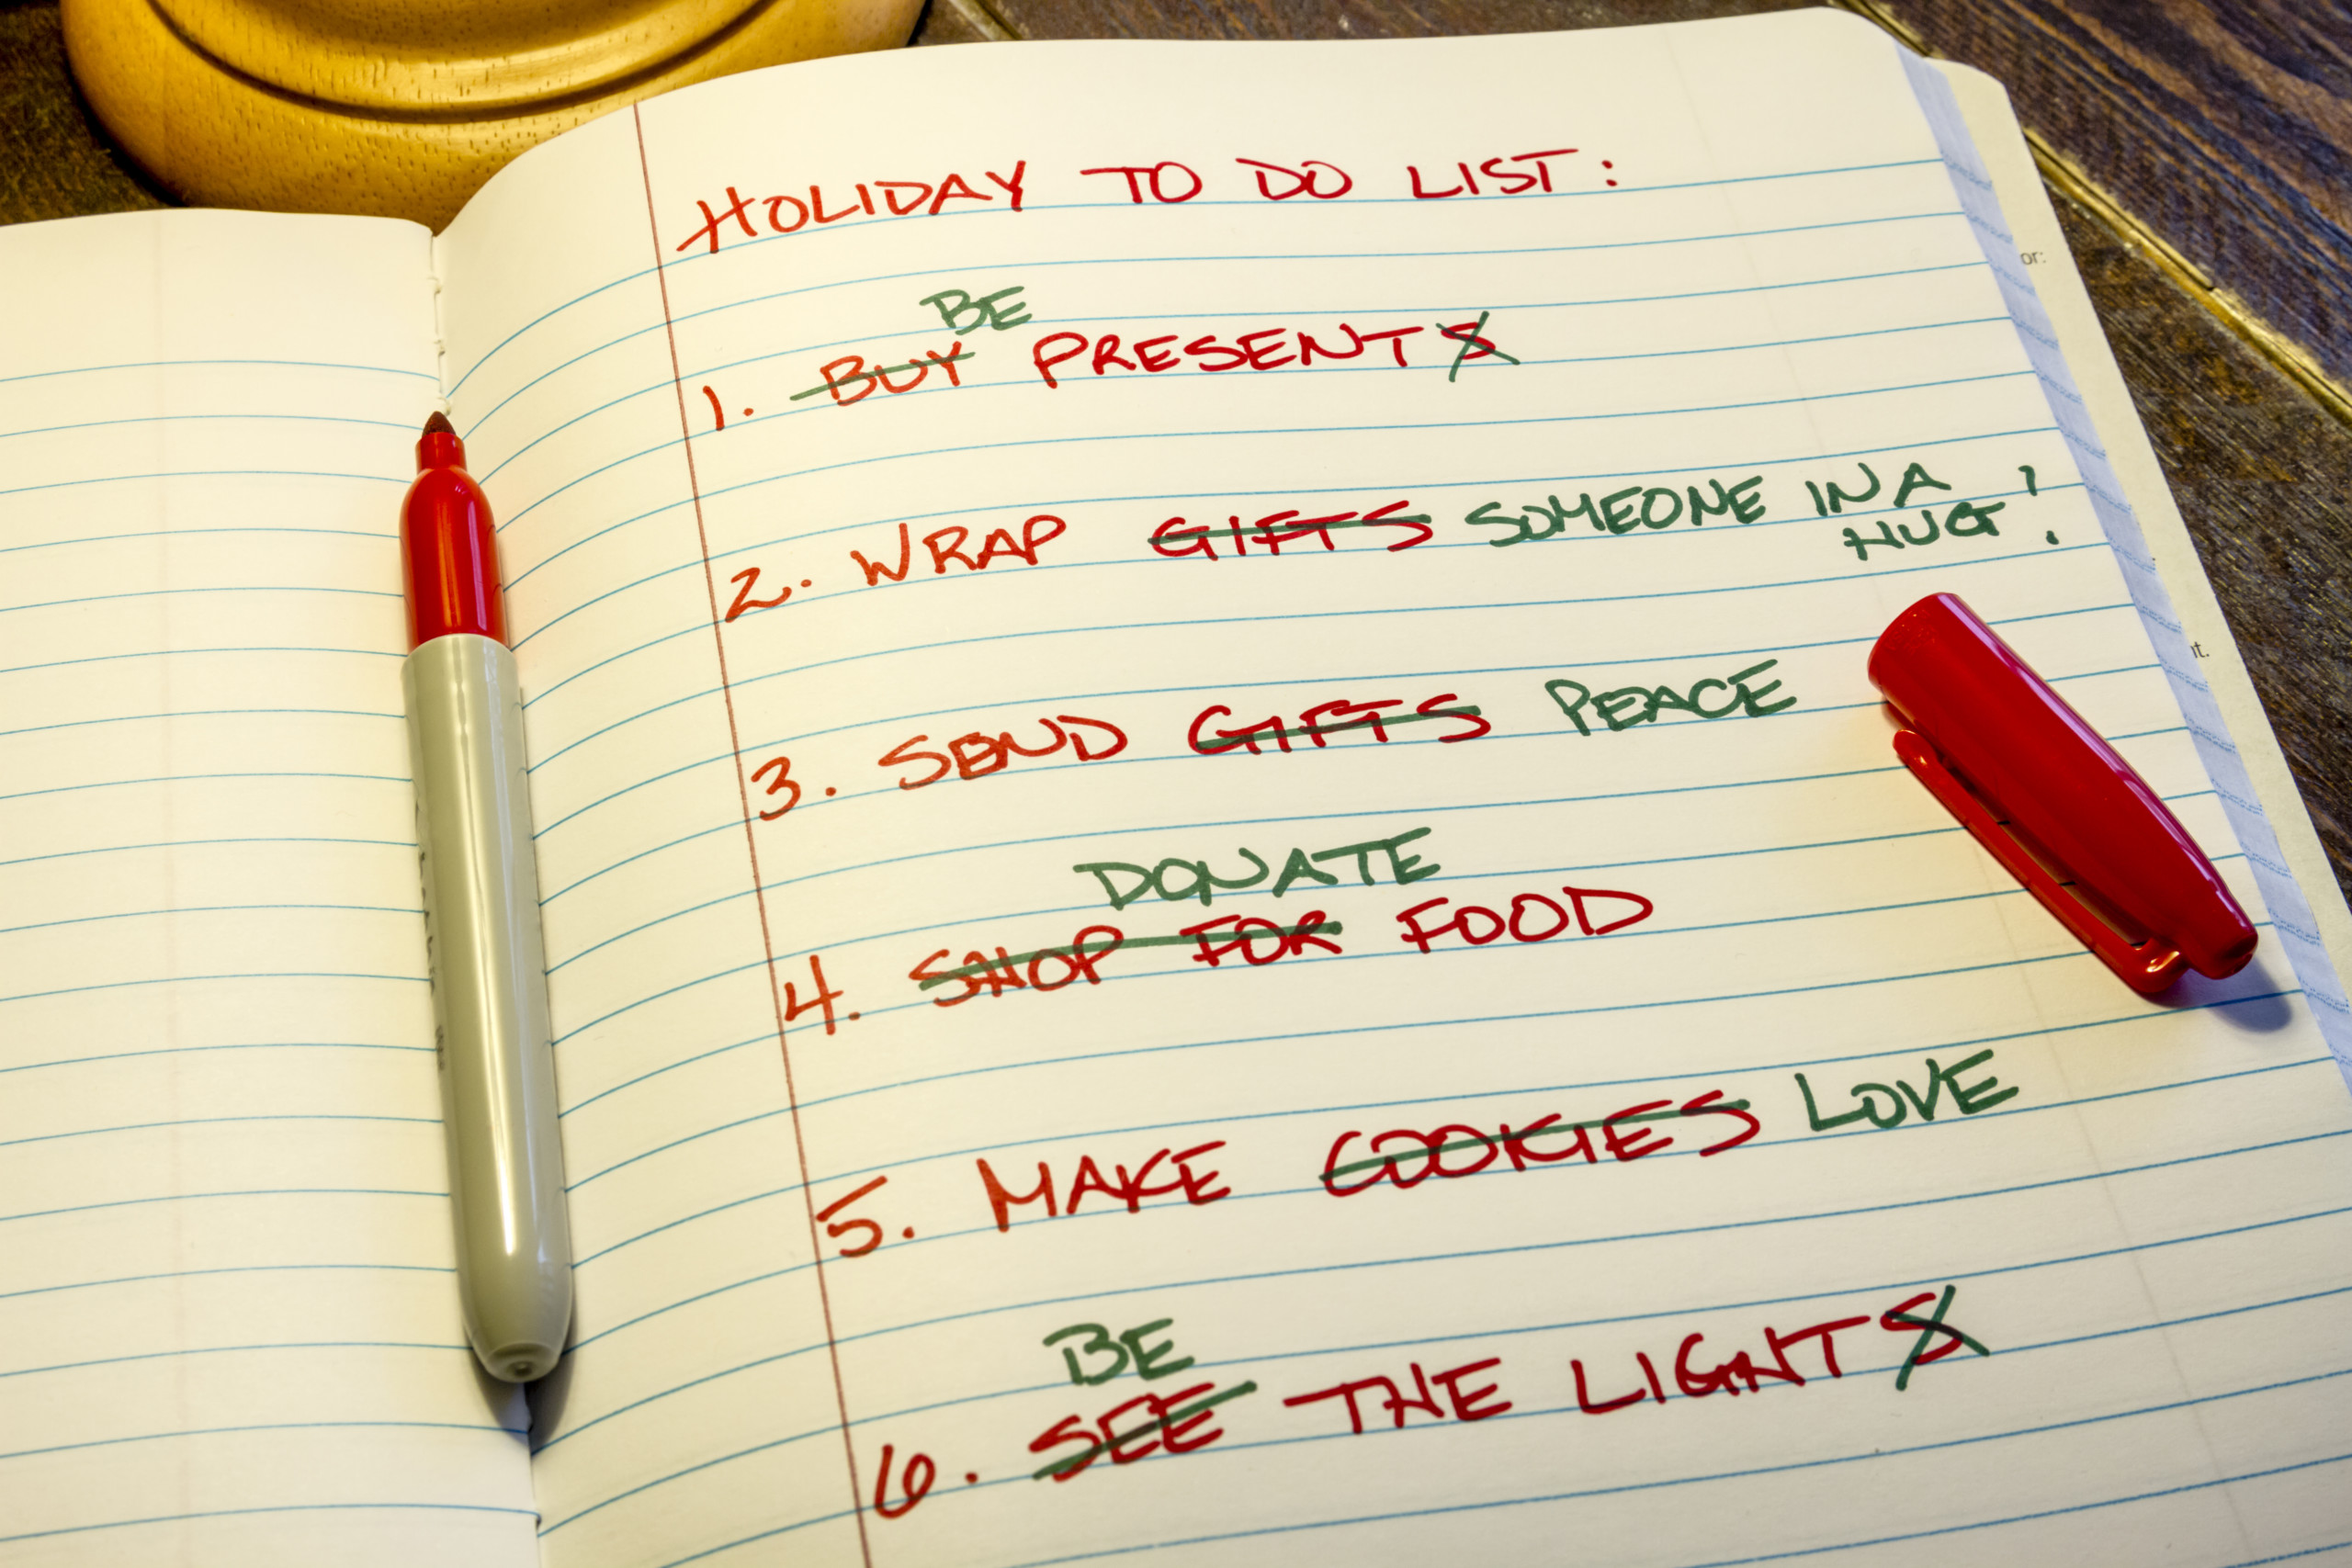 HOLIDAY TO DO LIST:
BE
1. BUY PRESENTS
2. WRAP GIFTS SOMEONE IN A
HUG!
3. SEND GIFTS PEACE
DONATE
4. SHOP FOR FOOD
5. MAKE COOKIES LOVE
BE
6. SEE THE LIGHTS
or: